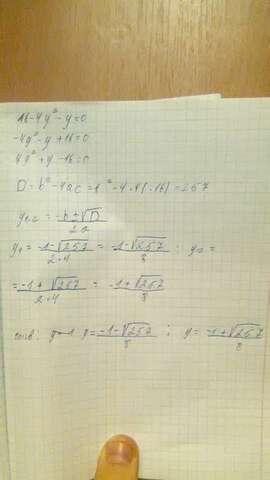 16-4y²-y=0
-4y²-y+16=0
4y²+y-16=0
D=b²-4ac=1²-4·4·(-16)=257
y₁,₂=(-b±√D)/2a
y₁=(-1-√257)/2·4=(-1-√257)/8; y₂=
=(-1+√257)/2·4=(-1+√257)/8
y=(-1-√257)/8; y=(-1+√257)/8